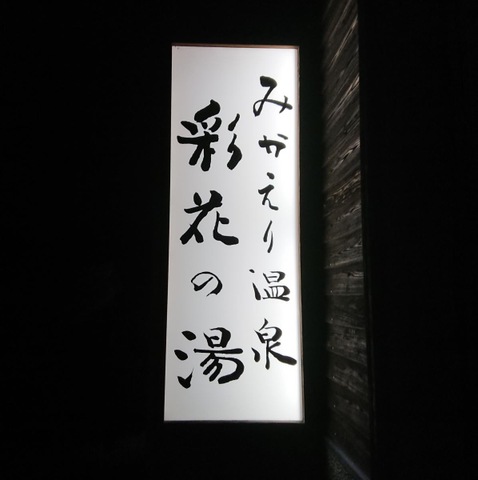 みかえり温泉
彩花の湯